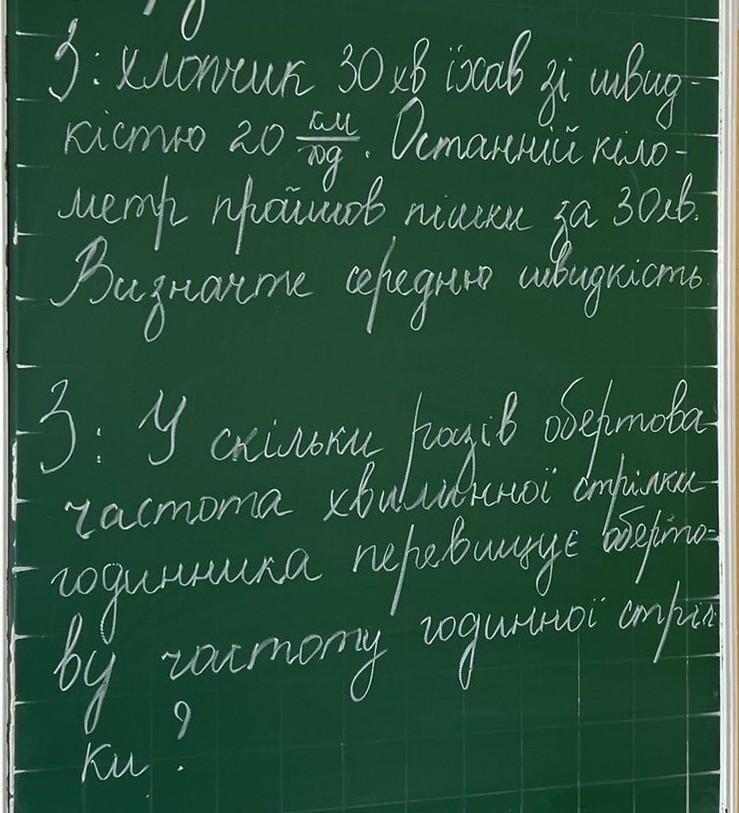 З: хлопчик 30 хв їхав зі швид-
кістю 20 км/год. Останній кіло-
метр пройшов пішки за 30хв.
Визначте середню швидкість.
З: У скільки разів обертова
частота хвилинної стрілки
годинника перевищує оберто-
ву частоту годинної стріл
ки?